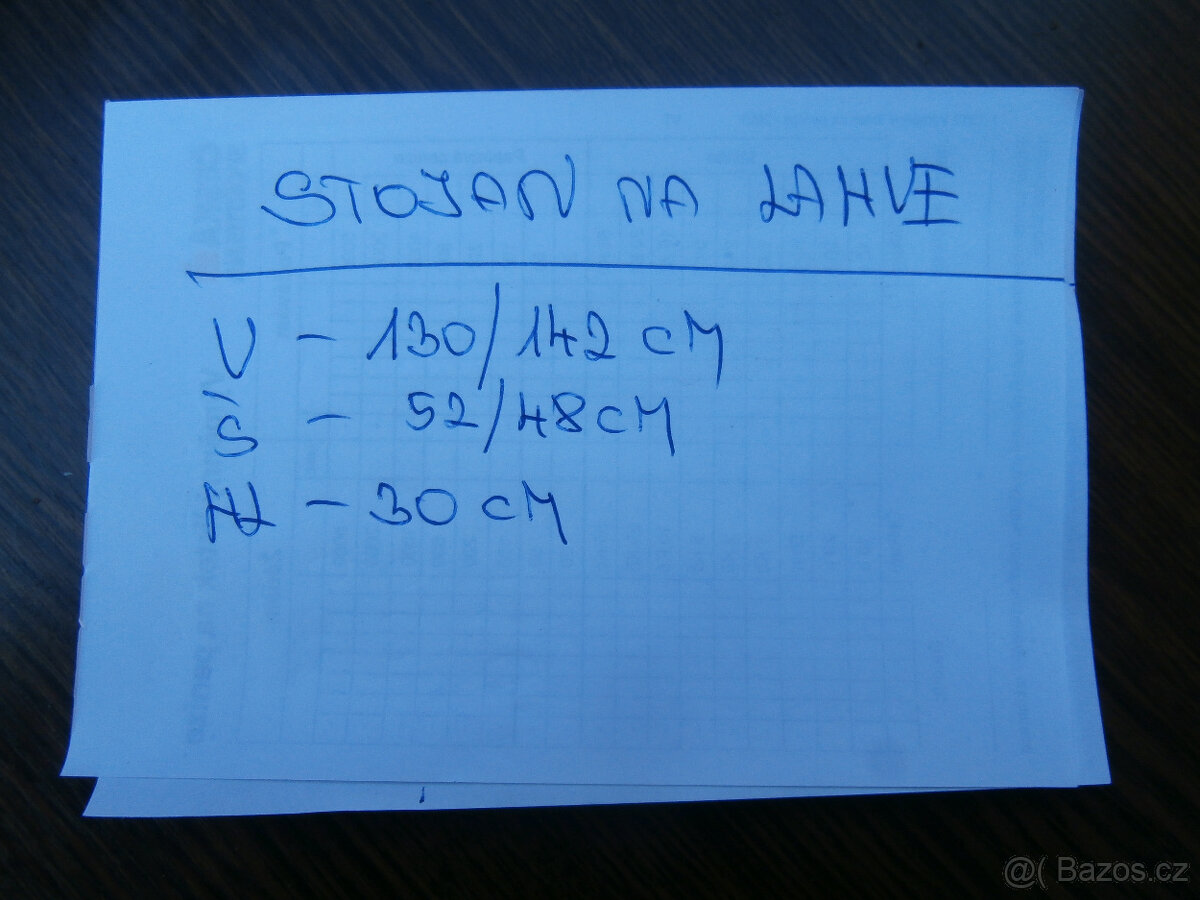 STOJAN NA LAHVE
V - 130/142 cM
Š - 52/48 cM
HL - 30 cM
@( Bazos.cz